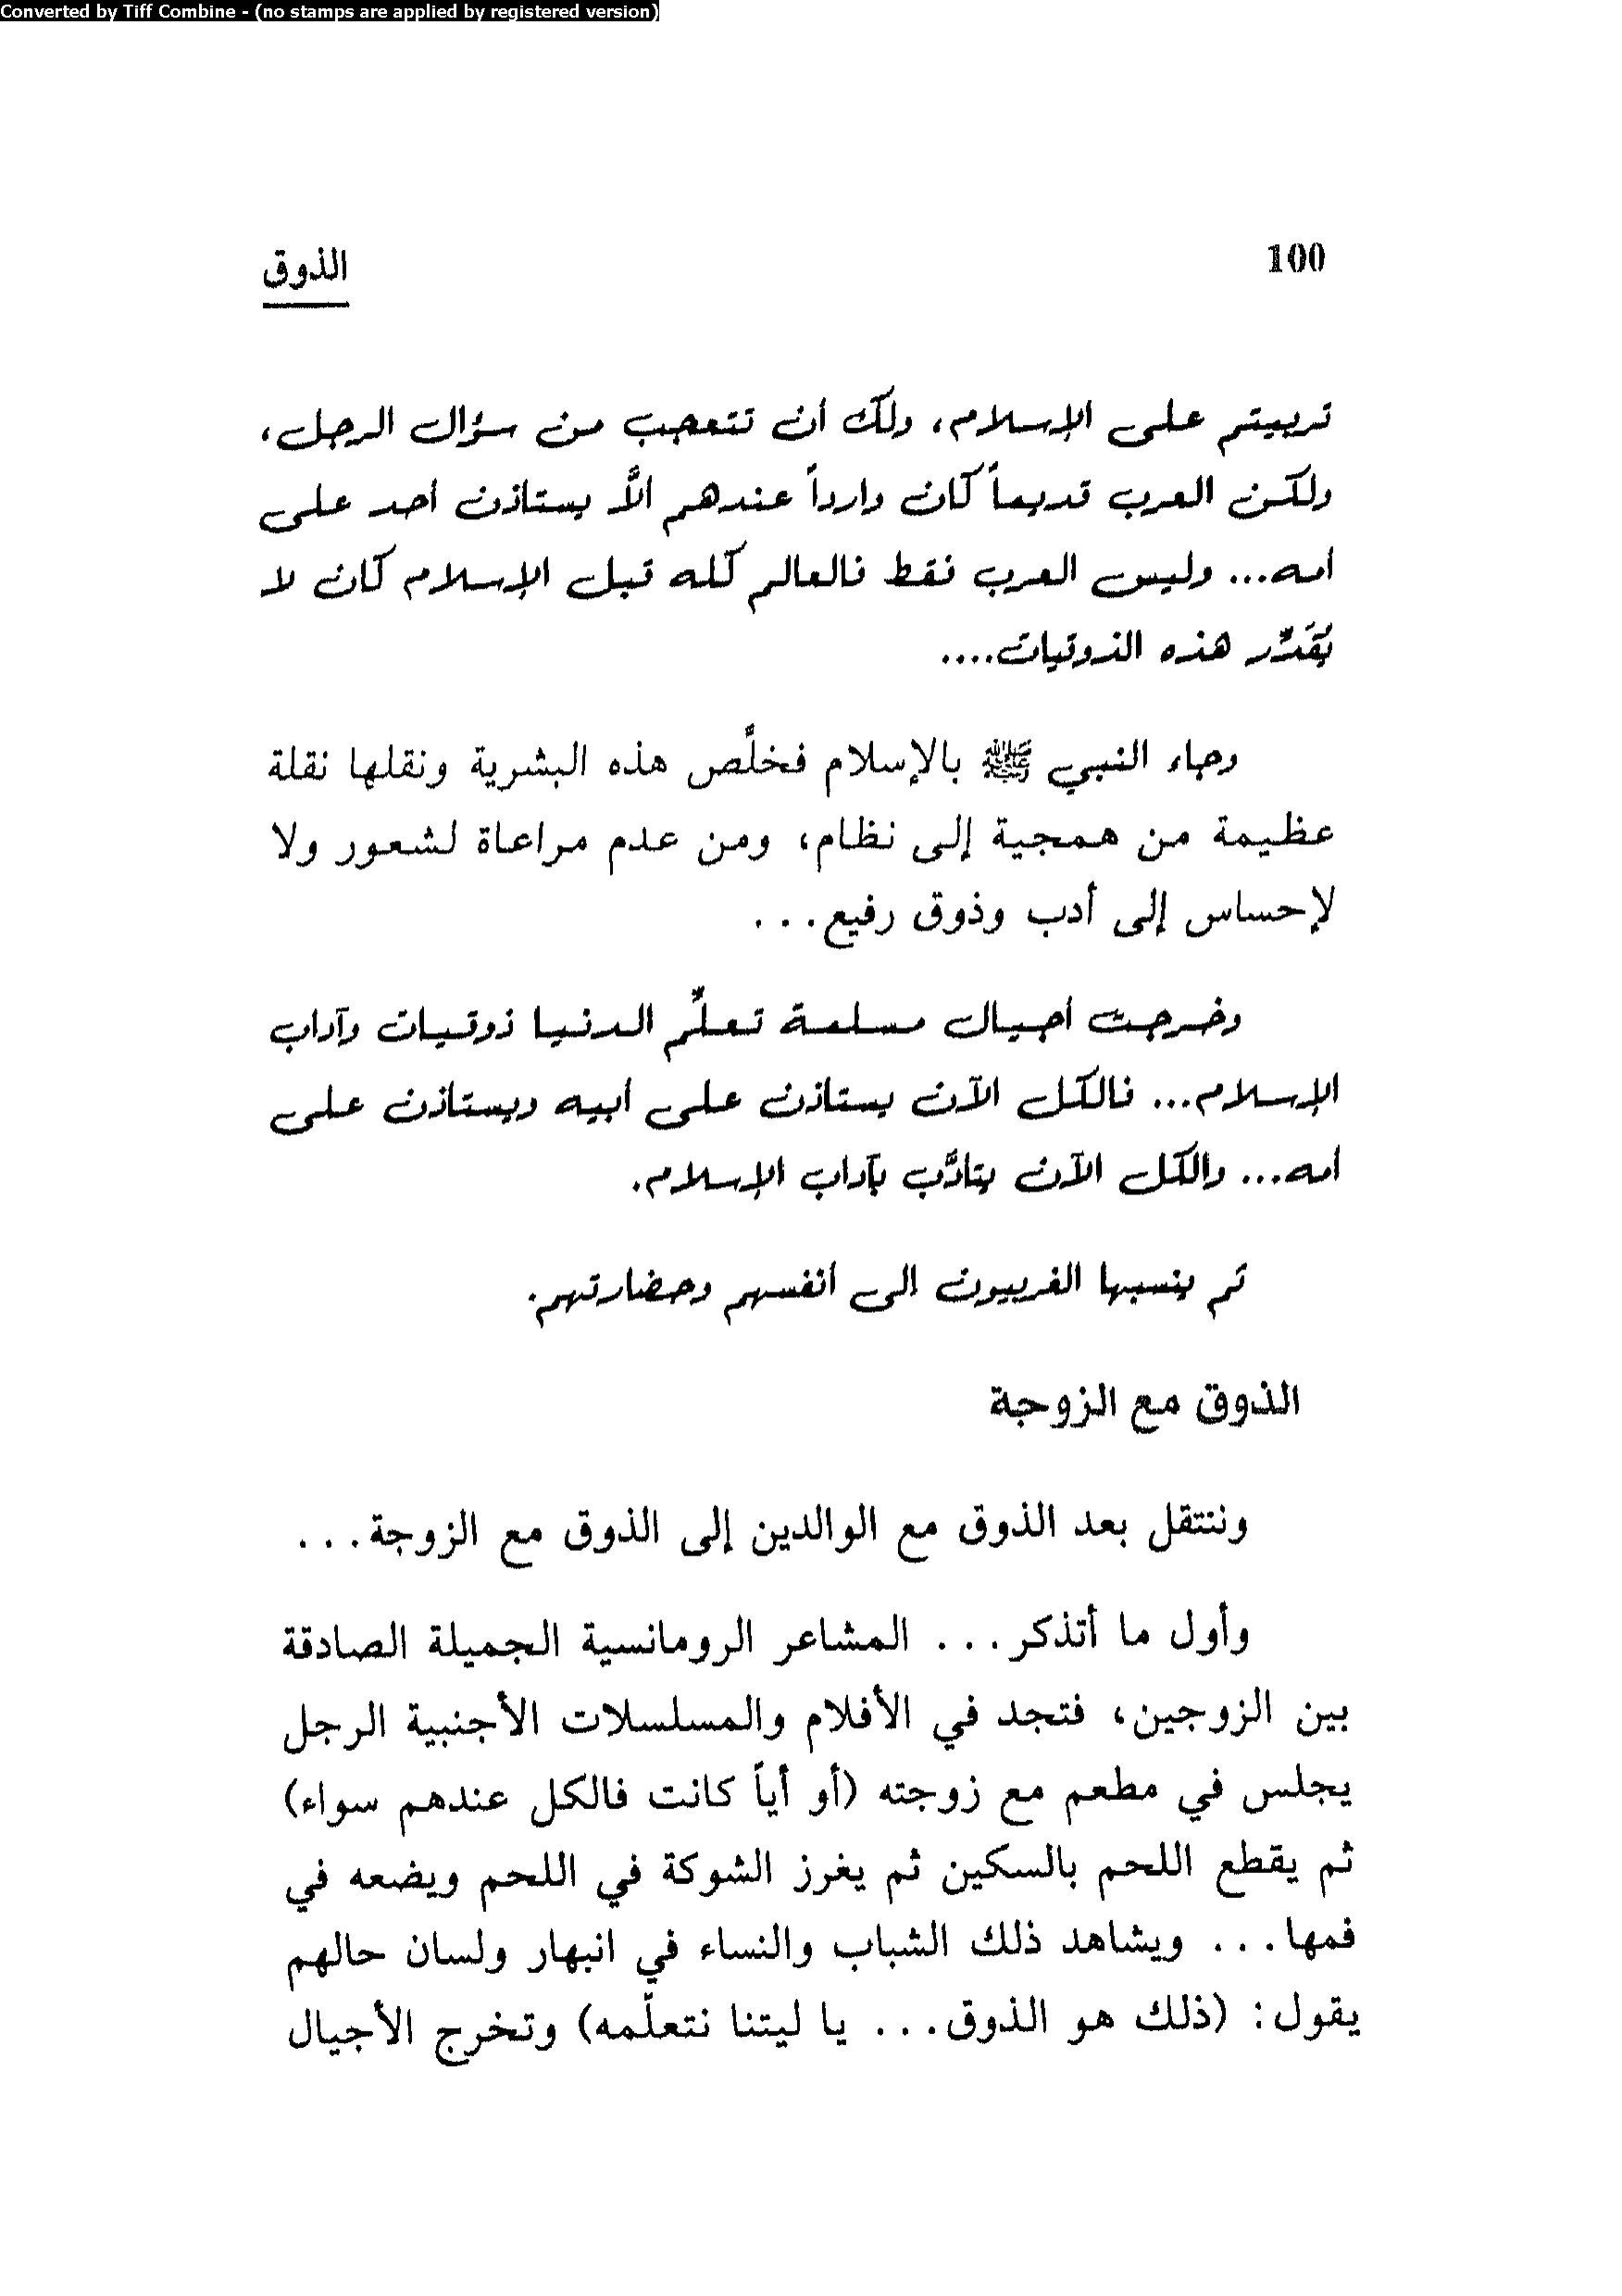 Converted by Tiff Combine - (no stamps are applied by registered version)
100
الذوق
تربيتم على الإسلام، ولك أن تتعجب من سؤال الرجل،
ولكن العرب قديماً كان وارداً عندهم ألاَّ يستأذن أحد على
أمه... وليس العرب فقط فالعالم كله قبل الإسلام كان لا
يُقَدِّر هذه الذوقيات....
وجاء النبي ﷺ بالإسلام فخلَّص هذه البشرية ونقلها نقلة
عظيمة من همجية إلى نظام، ومن عدم مراعاة لشعور ولا
لإحساس إلى أدب وذوق رفيع...
وخرجت أجيال مسلمة تعلِّم الدنيا ذوقيات وآداب
الإسلام... فالكل الآن يستأذن على أبيه ويستأذن على
أمه... والكل الآن يتأدَّب بآداب الإسلام.
ثم ينسبها الغربيون إلى أنفسهم وحضارتهم.
الذوق مع الزوجة
وننتقل بعد الذوق مع الوالدين إلى الذوق مع الزوجة...
وأول ما أتذكر... المشاعر الرومانسية الجميلة الصادقة
بين الزوجين، فتجد في الأفلام والمسلسلات الأجنبية الرجل
يجلس في مطعم مع زوجته (أو أياً كانت فالكل عندهم سواء)
ثم يقطع اللحم بالسكين ثم يغرز الشوكة في اللحم ويضعه في
فمها... ويشاهد ذلك الشباب والنساء في انبهار ولسان حالهم
يقول: (ذلك هو الذوق... يا ليتنا نتعلّمه) وتخرج الأجيال